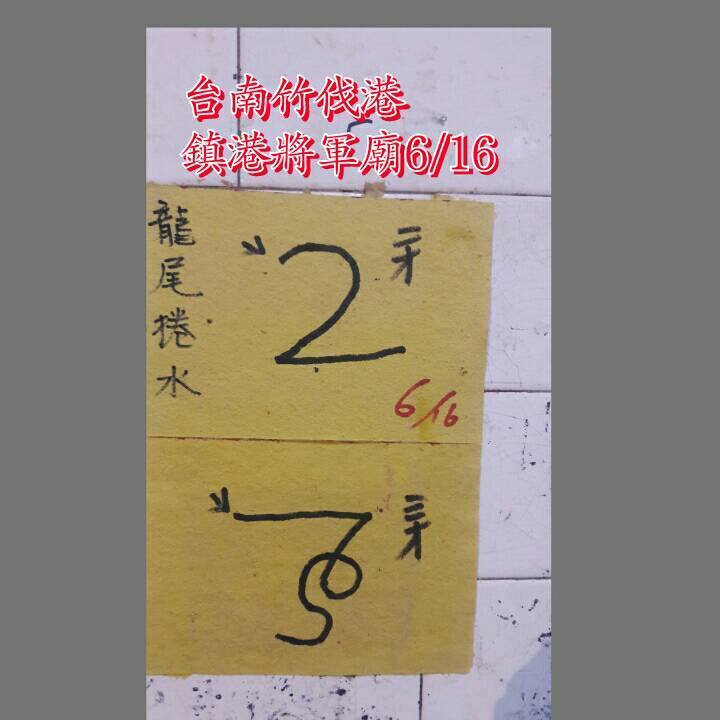 台南竹伐港
鎮港將軍廟6/16
龍尾捲水
2
6/16